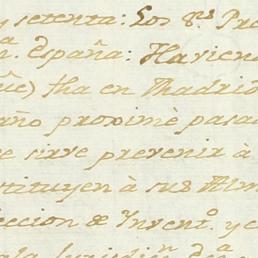 y setenta: Los Srs Pre
n.a España: Haviend
ũe) fha en Madrid
año proximè pasad
e sirve prevenir à
stituyen à sus Alm
eccion de Invent.o y c